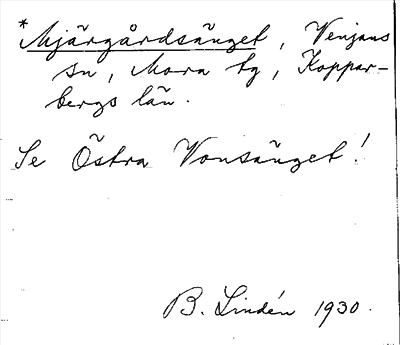 *Mjärgårdsänget, Venjans
sn, Mora tg, Koppar-
bergs län.
Se Östra Vonsänget!
B. Lindén 1930.